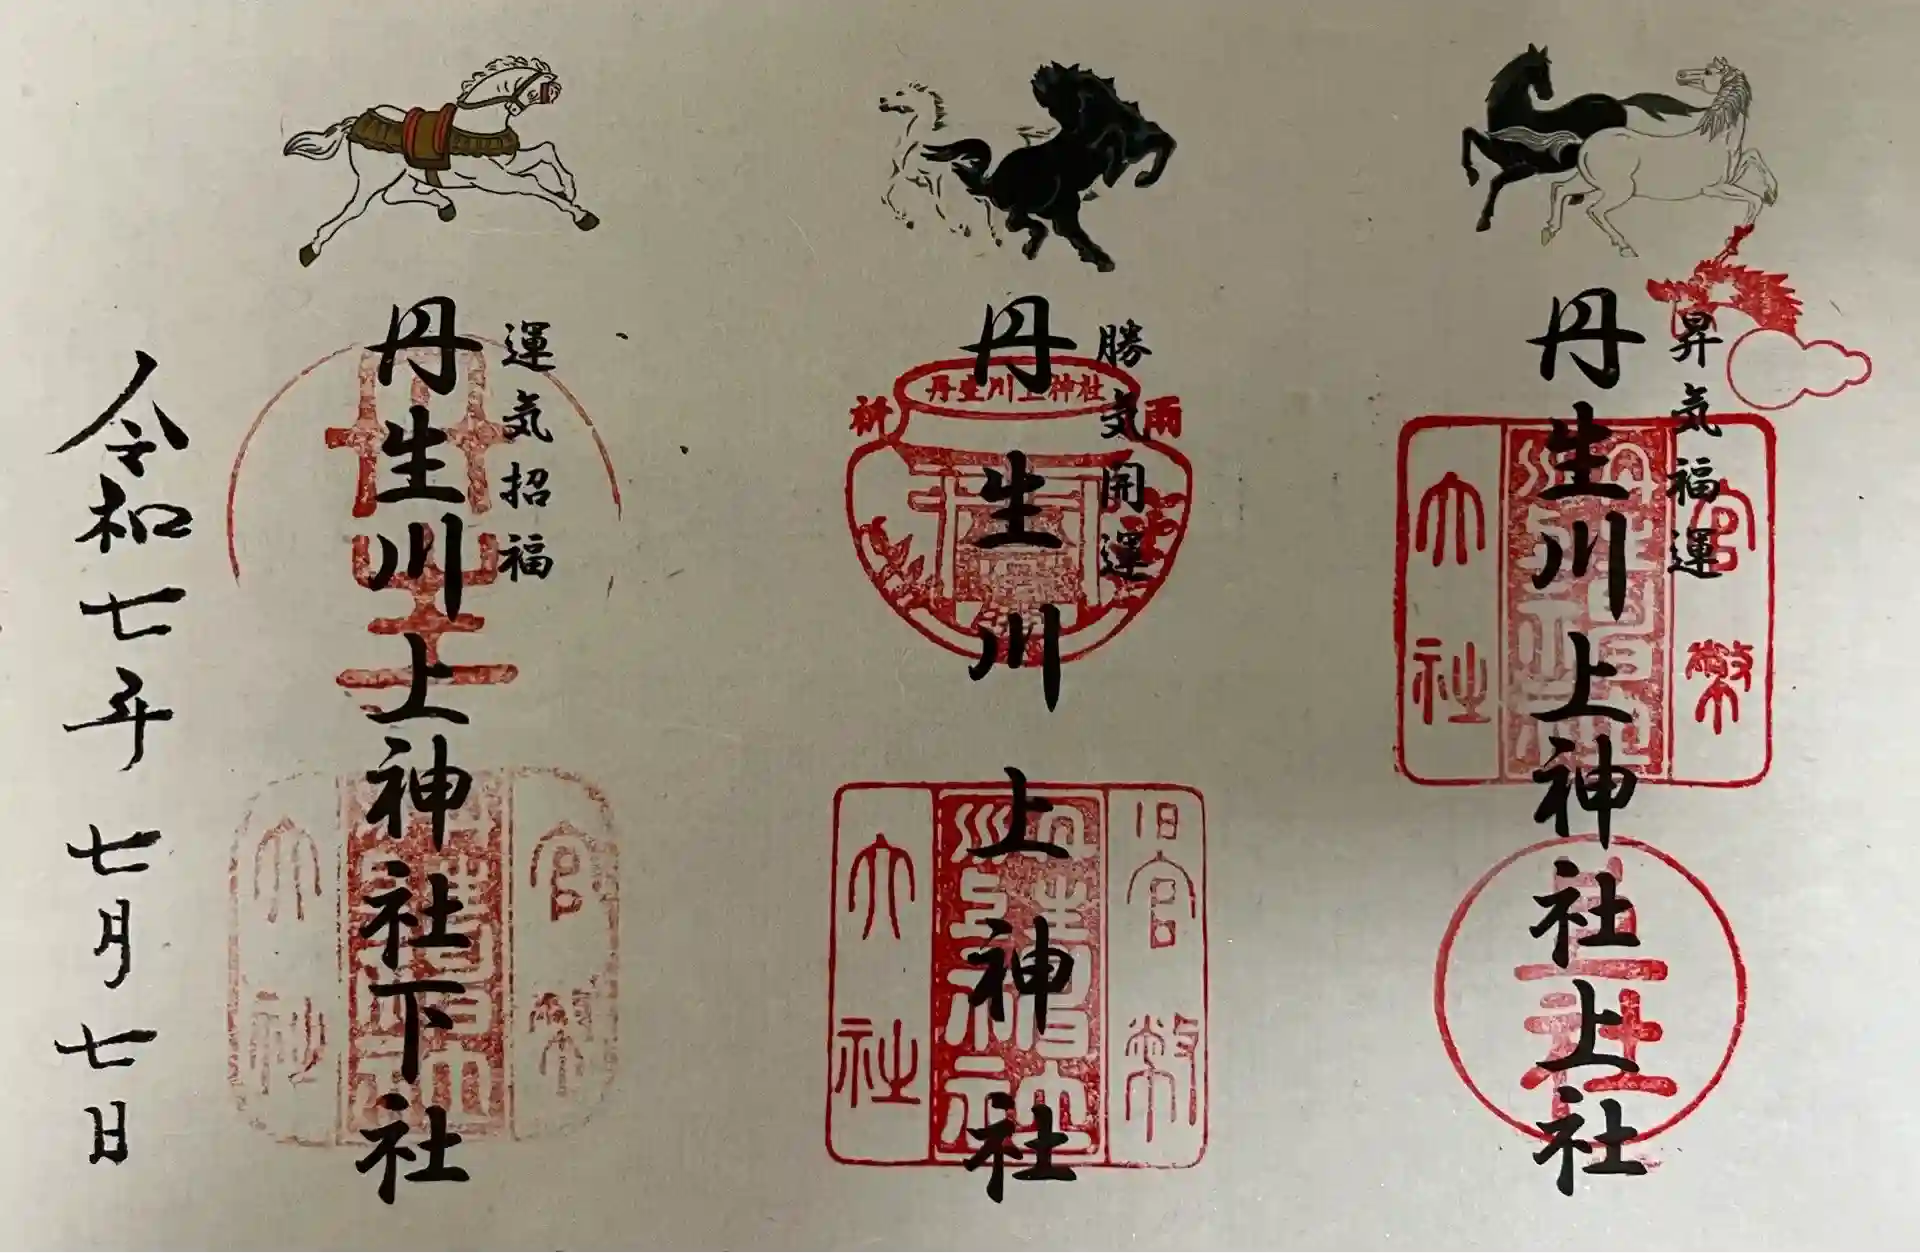 昇気福運
丹生川上神社上社
官幣
大社
上社
勝気開運
丹生川上神社
丹生川上神社
祈
雨
旧官幣
大社
運気招福
丹生川上神社下社
官幣
大社
令和七年七月七日